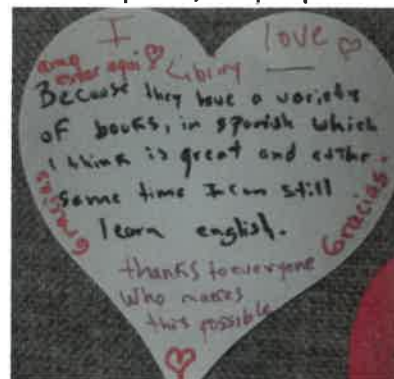 I love
amo estar aqui Library
Because they have a variety
of books, in spanish which
I think is great and at the
same time I can still
learn english.
Gracias
Gracias.
thanks to everyone
who makes
this possible